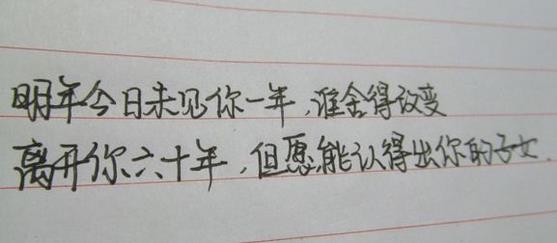 明年今日未见你一年,谁舍得改变
离开你六十年,但愿能认得出你的子女